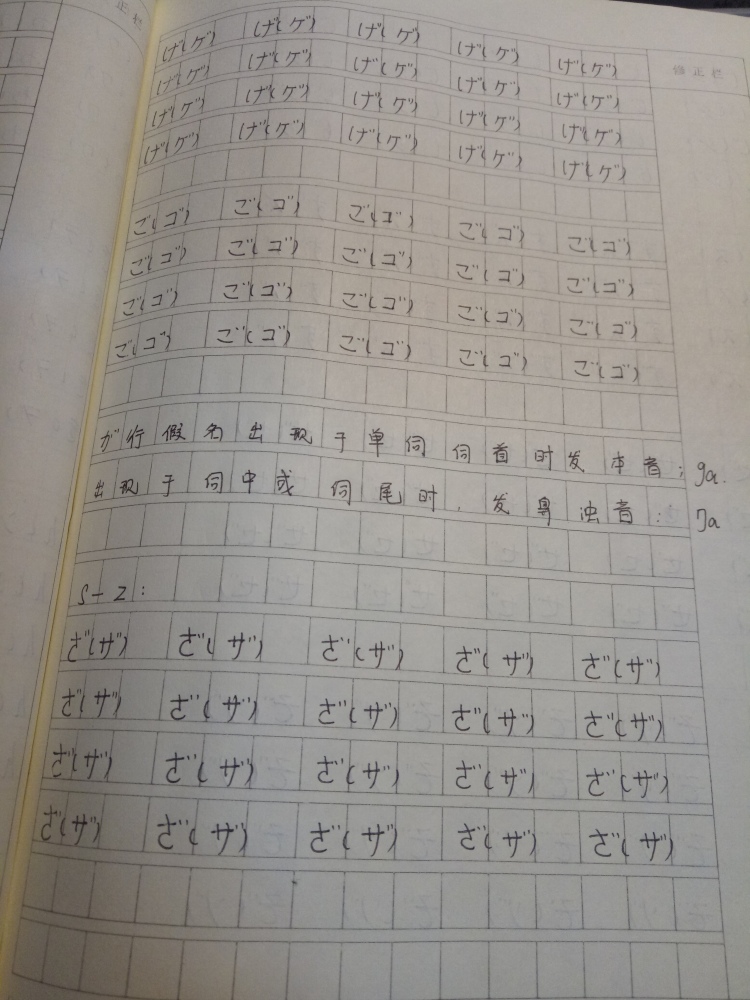 正栏
修正栏
げ(ゲ) げ(ゲ) げ(ゲ) げ(ゲ) げ(ゲ)
げ(ゲ) げ(ゲ) げ(ゲ) げ(ゲ) げ(ゲ)
げ(ゲ) げ(ゲ) げ(ゲ) げ(ゲ) げ(ゲ)
げ(ゲ) げ(ゲ) げ(ゲ) げ(ゲ) げ(ゲ)
ご(ゴ) ご(ゴ) ご(ゴ) ご(ゴ) ご(ゴ)
ご(ゴ) ご(ゴ) ご(ゴ) ご(ゴ) ご(ゴ)
ご(ゴ) ご(ゴ) ご(ゴ) ご(ゴ) ご(ゴ)
ご(ゴ) ご(ゴ) ご(ゴ) ご(ゴ) ご(ゴ)
が行假名出现于单词词首时发本音; ga.
出现于词中或词尾时,发鼻浊音: ŋa
S-Z:
ざ(ザ) ざ(ザ) ざ(ザ) ざ(ザ) ざ(ザ)
ざ(ザ) ざ(ザ) ざ(ザ) ざ(ザ) ざ(ザ)
ざ(ザ) ざ(ザ) ざ(ザ) ざ(ザ) ざ(ザ)
ざ(ザ) ざ(ザ) ざ(ザ) ざ(ザ) ざ(ザ)